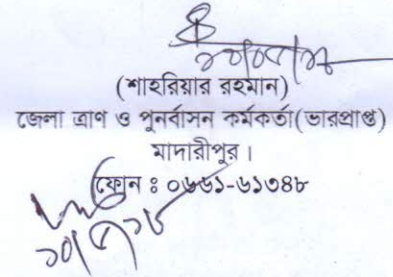 (শাহরিয়ার রহমান)
জেলা ত্রাণ ও পুনর্বাসন কর্মকর্তা(ভারপ্রাপ্ত)
মাদারীপুর।
ফোন ঃ ০৬৬১-৬১৩৪৮